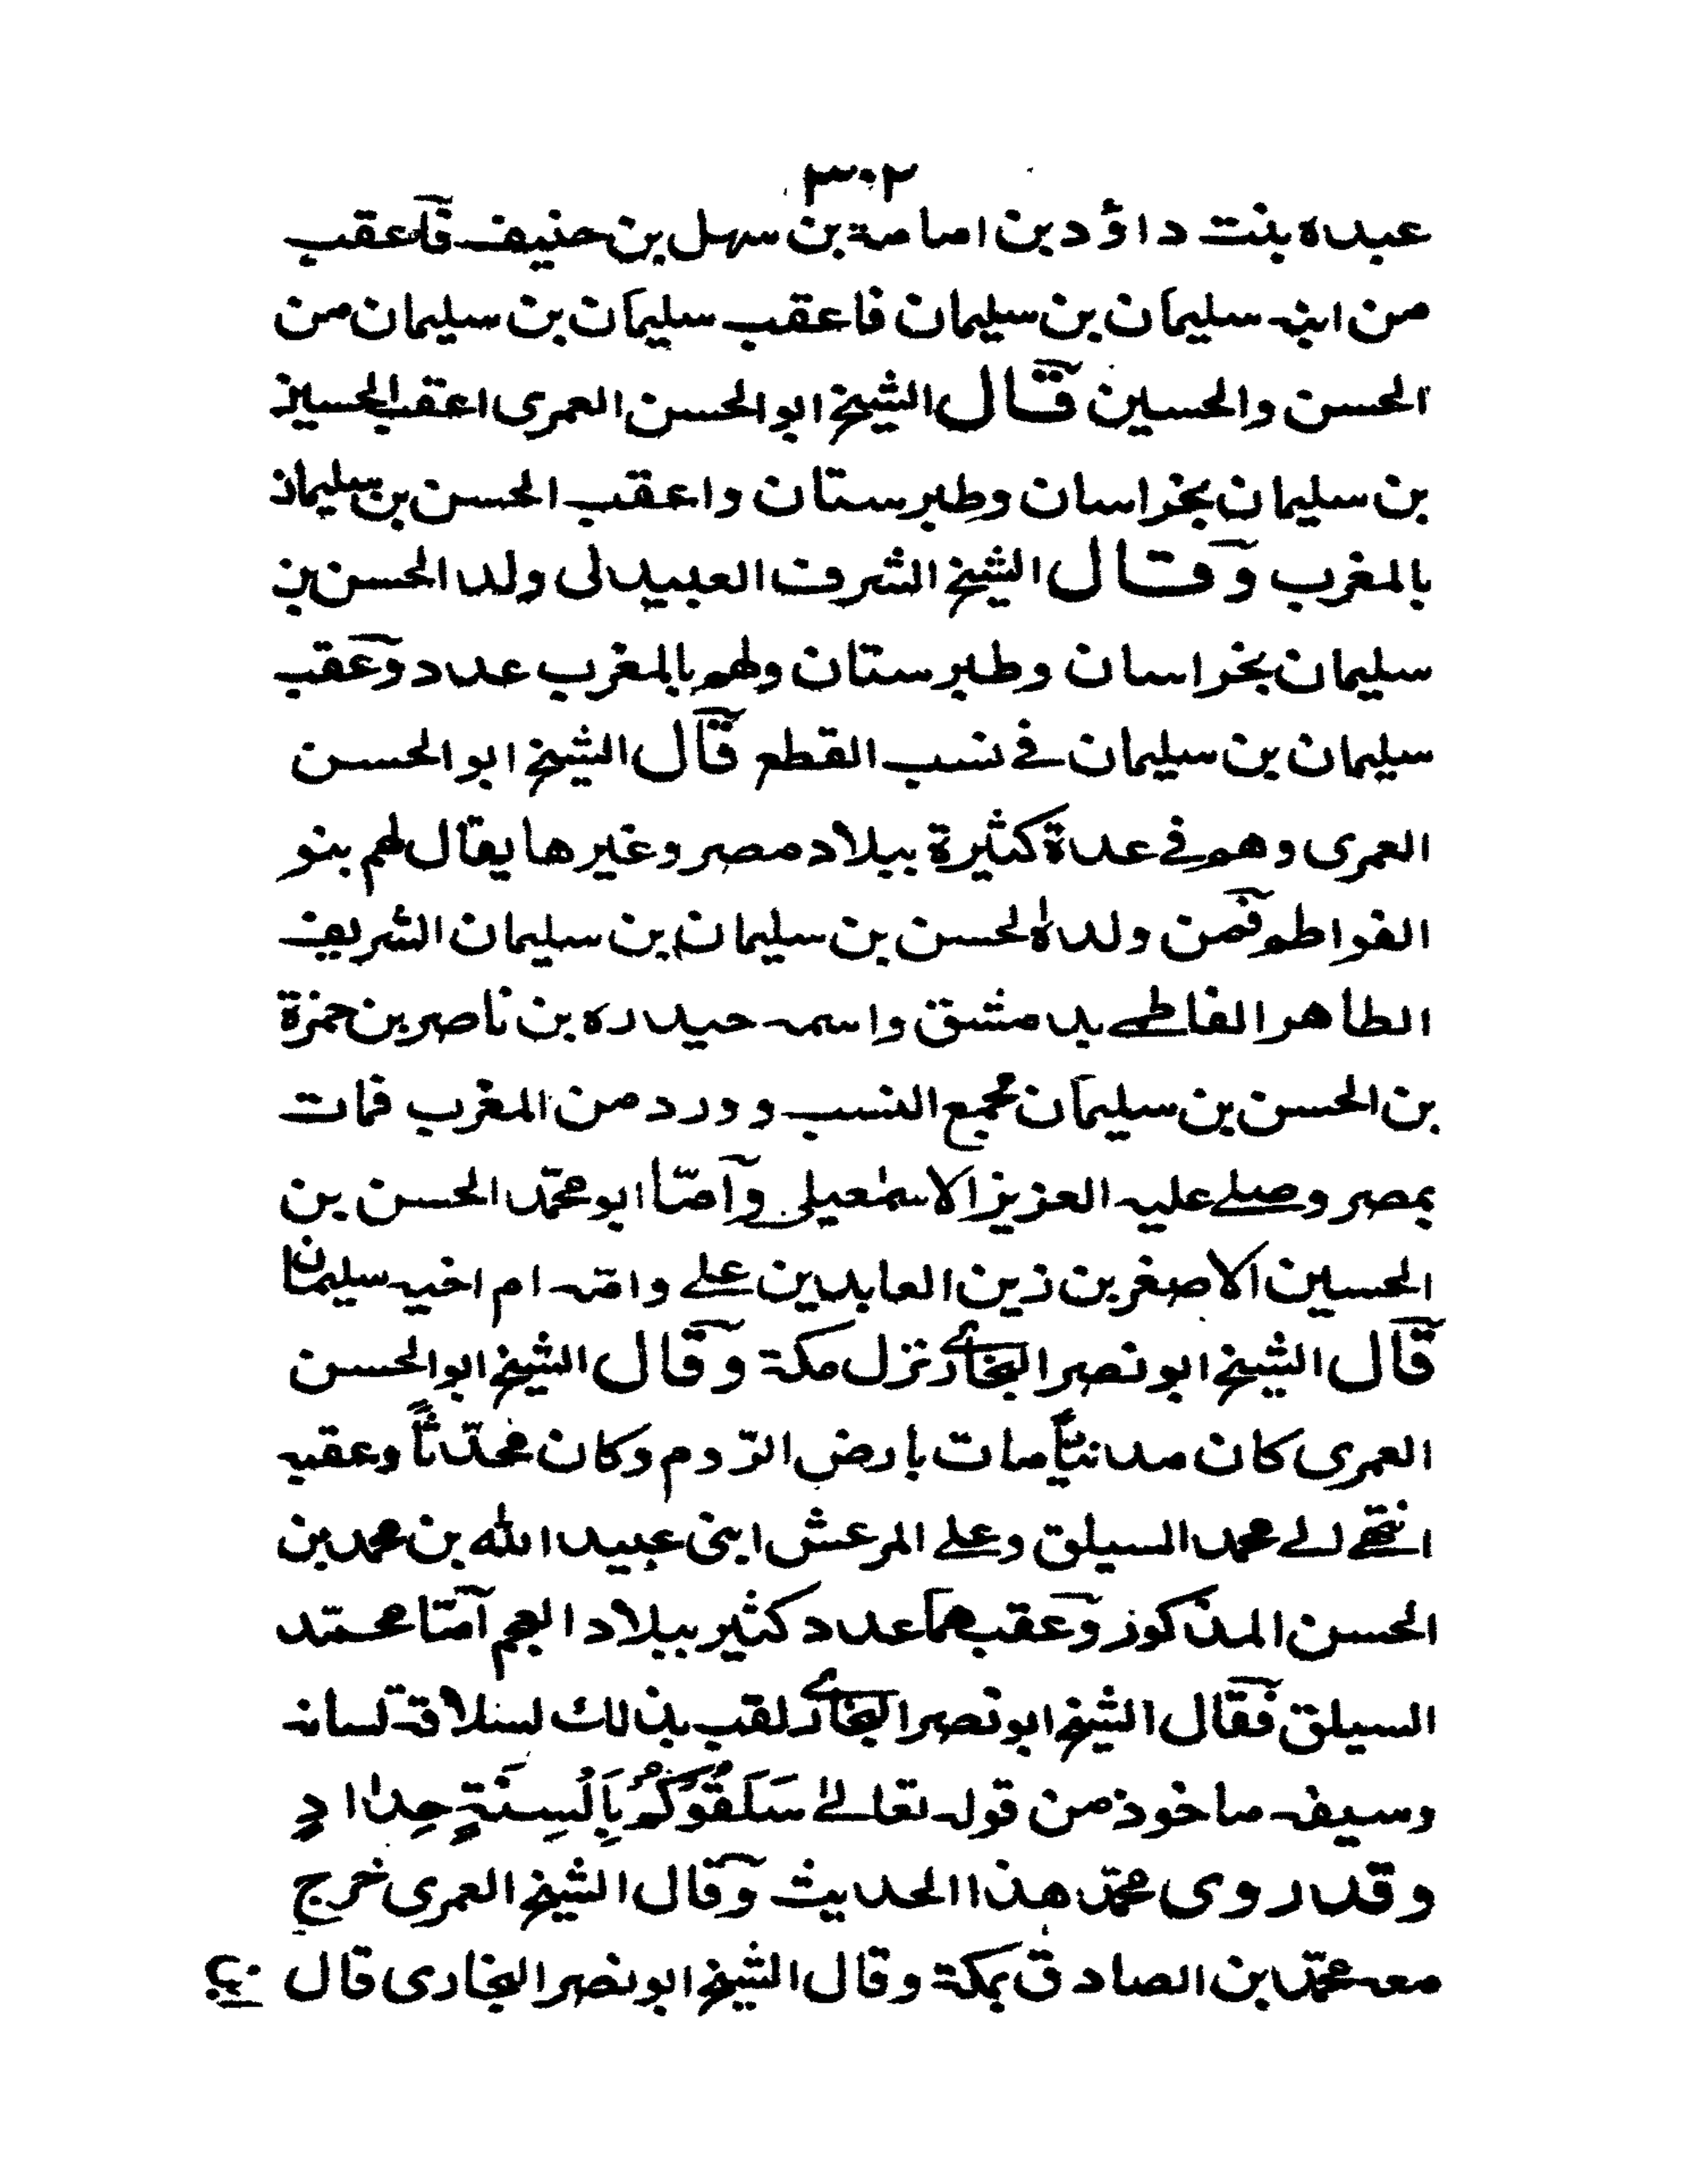 ٣٠٢
عبده بنت داؤد بن امامة بن سهل بن حنيف فاعقب
من ابنه سليمان بن سليمان فاعقب سليمان بن سليمان من
الحسن والحسين قال الشيخ ابو الحسن العمرى اعقب الحسين
بن سليمان بخراسان وطبرستان واعقب الحسن بن سليمان
بالمغرب وقال الشيخ الشرف العبيدلى ولد الحسن بن
سليمان بخراسان وطبرستان ولهم بالمغرب عدد وعقب
سليمان بن سليمان فے نسب القطع قال الشيخ ابو الحسن
العمرى وهم فے عدة كثيرة ببلاد مصر وغيرها يقال لهم بنو
الفواطم فمن ولده الحسن بن سليمان بن سليمان الشريف
الطاهر الفاطمے بدمشق واسمه حيدره بن ناصر بن حمزة
بن الحسن بن سليمان مجمع النسب وورد من المغرب فمات
بمصر وصلے عليه العزيز الاسمٰعيلى وآمّا ابو محمّد الحسن بن
الحسين الاصغر بن زين العابدين علے وامّه ام اخيه سليمان
قال الشيخ ابو نصر البخارے نزل مكة وقال الشيخ ابو الحسن
العمرى كان مدنيًّا مات بارض الرّوم وكان محدّثاً وعقبه
انتهے الے محمد السيلق وعلے المرعش ابنى عبيد الله بن محمد بن
الحسن المذكوز وعقبهما عدد كثير ببلاد العجم آمّا محمّد
السيلق فقال الشيخ ابو نصر البخارے لقب بذلك لسلاقة لسانه
وسيفه ماخوذ من قوله تعالےٰ سَلَقُوْكُمْ بِاَلْسِنَةٍ حِدٰادٍ
وقد روى محمّد هذا الحديث وقال الشيخ العمرى خرج
معه محمّد ابن الصادق بمكة وقال الشيخ ابو نصر البخارى قال